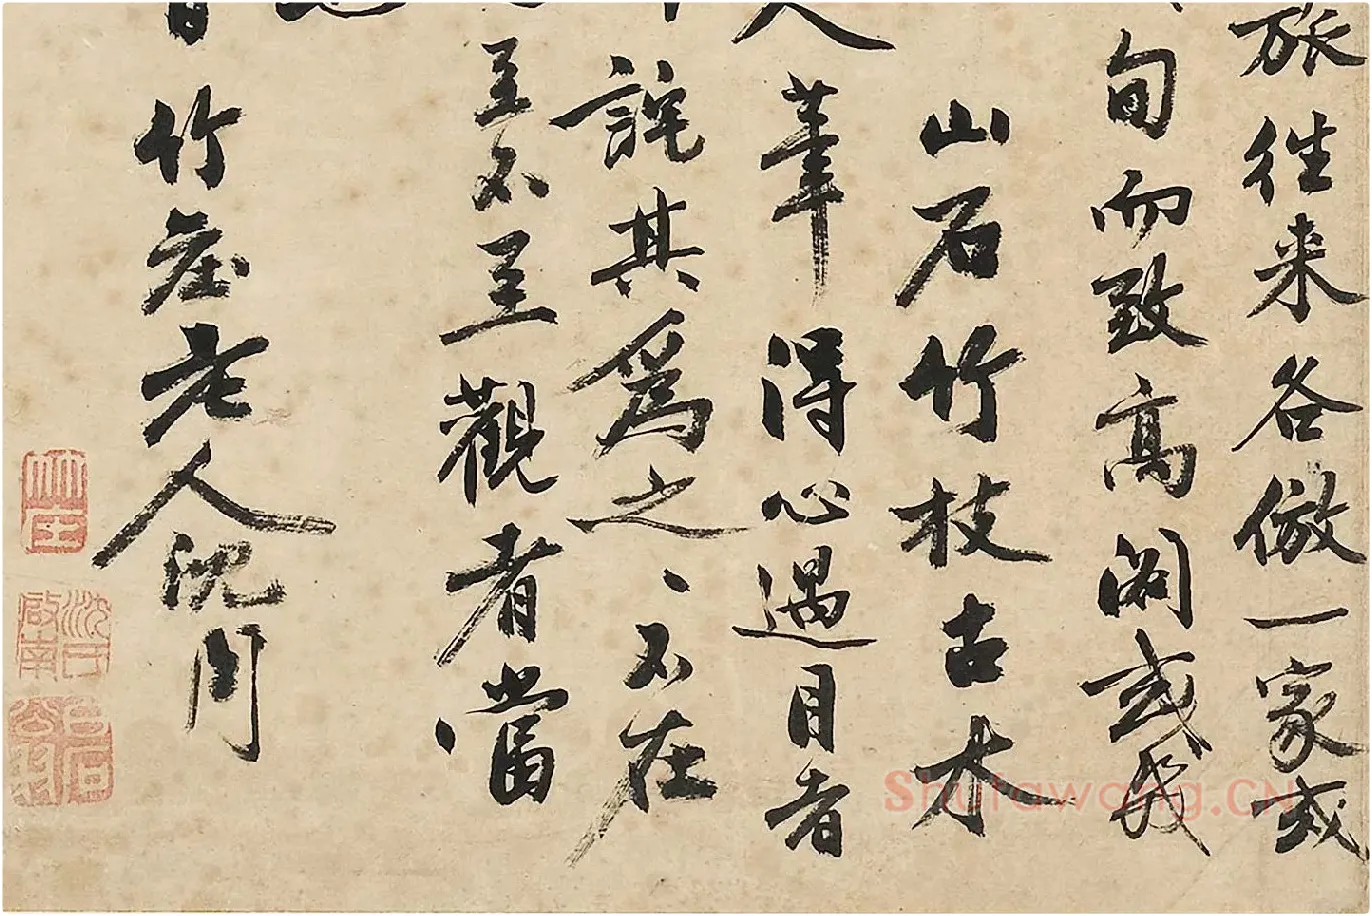 旅往来各倣一家或
旬而致高閣或幾
山石竹枝古木
人筆得心遇目者
詫其爲之不在
至不至觀者當
竹莊老人沈周
沈氏啟南
Shufawang.CN